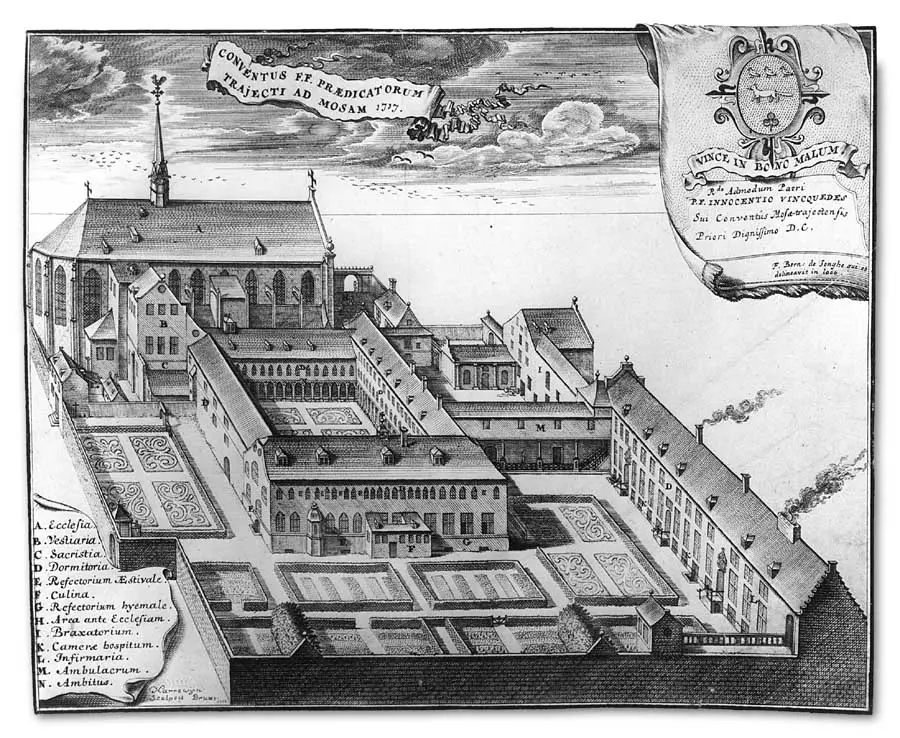 CONVENTUS F.F. PRÆDICATORUM
TRAJECTI AD MOSAM 1717.
VINCE IN BONO MALUM
Rdo Admodum Patri
P.F. INNOCENTIO VINCQUEDES
Sui Conventûs Mosæ-trajectensis
Priori Dignissimo D.C.
F. Bern. de Jonghe
delineavit in loco
A. Ecclesia.
B. Vestiaria.
C. Sacristia.
D. Dormitoria.
E. Refectorium Æstivale.
F. Culina.
G. Refectorium hyemale.
H. Area ante Ecclesiam.
I. Braxatorium.
K. Cameræ hospitum.
L. Infirmaria.
M. Ambulacrum.
N. Ambitus.
Harrewyn
Sculpsit Brux
A
B
C
D
D
M
I
D
F
G